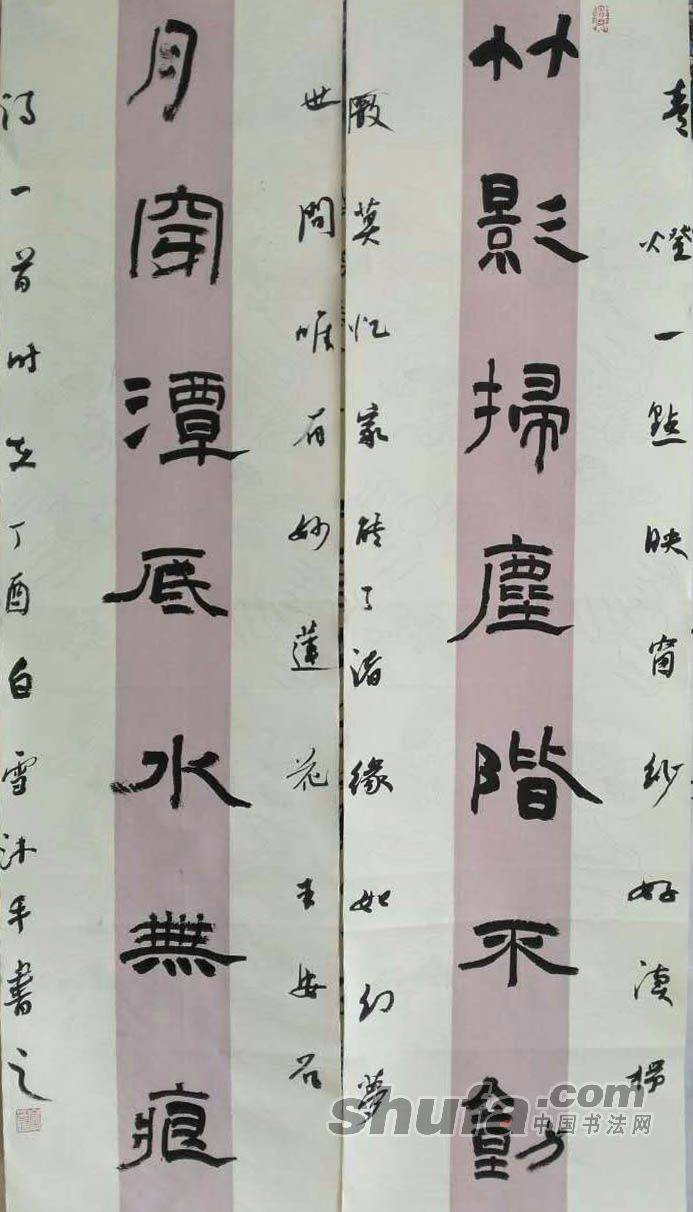 青燈一點映窗紗好讀楞
竹影掃塵階不動
嚴莫忆家能了诸緣如幻夢
世間唯有妙蓮花王安石
月穿潭底水無痕
诗一首时在丁酉白雪沐手書之
shufa.com
中国书法网